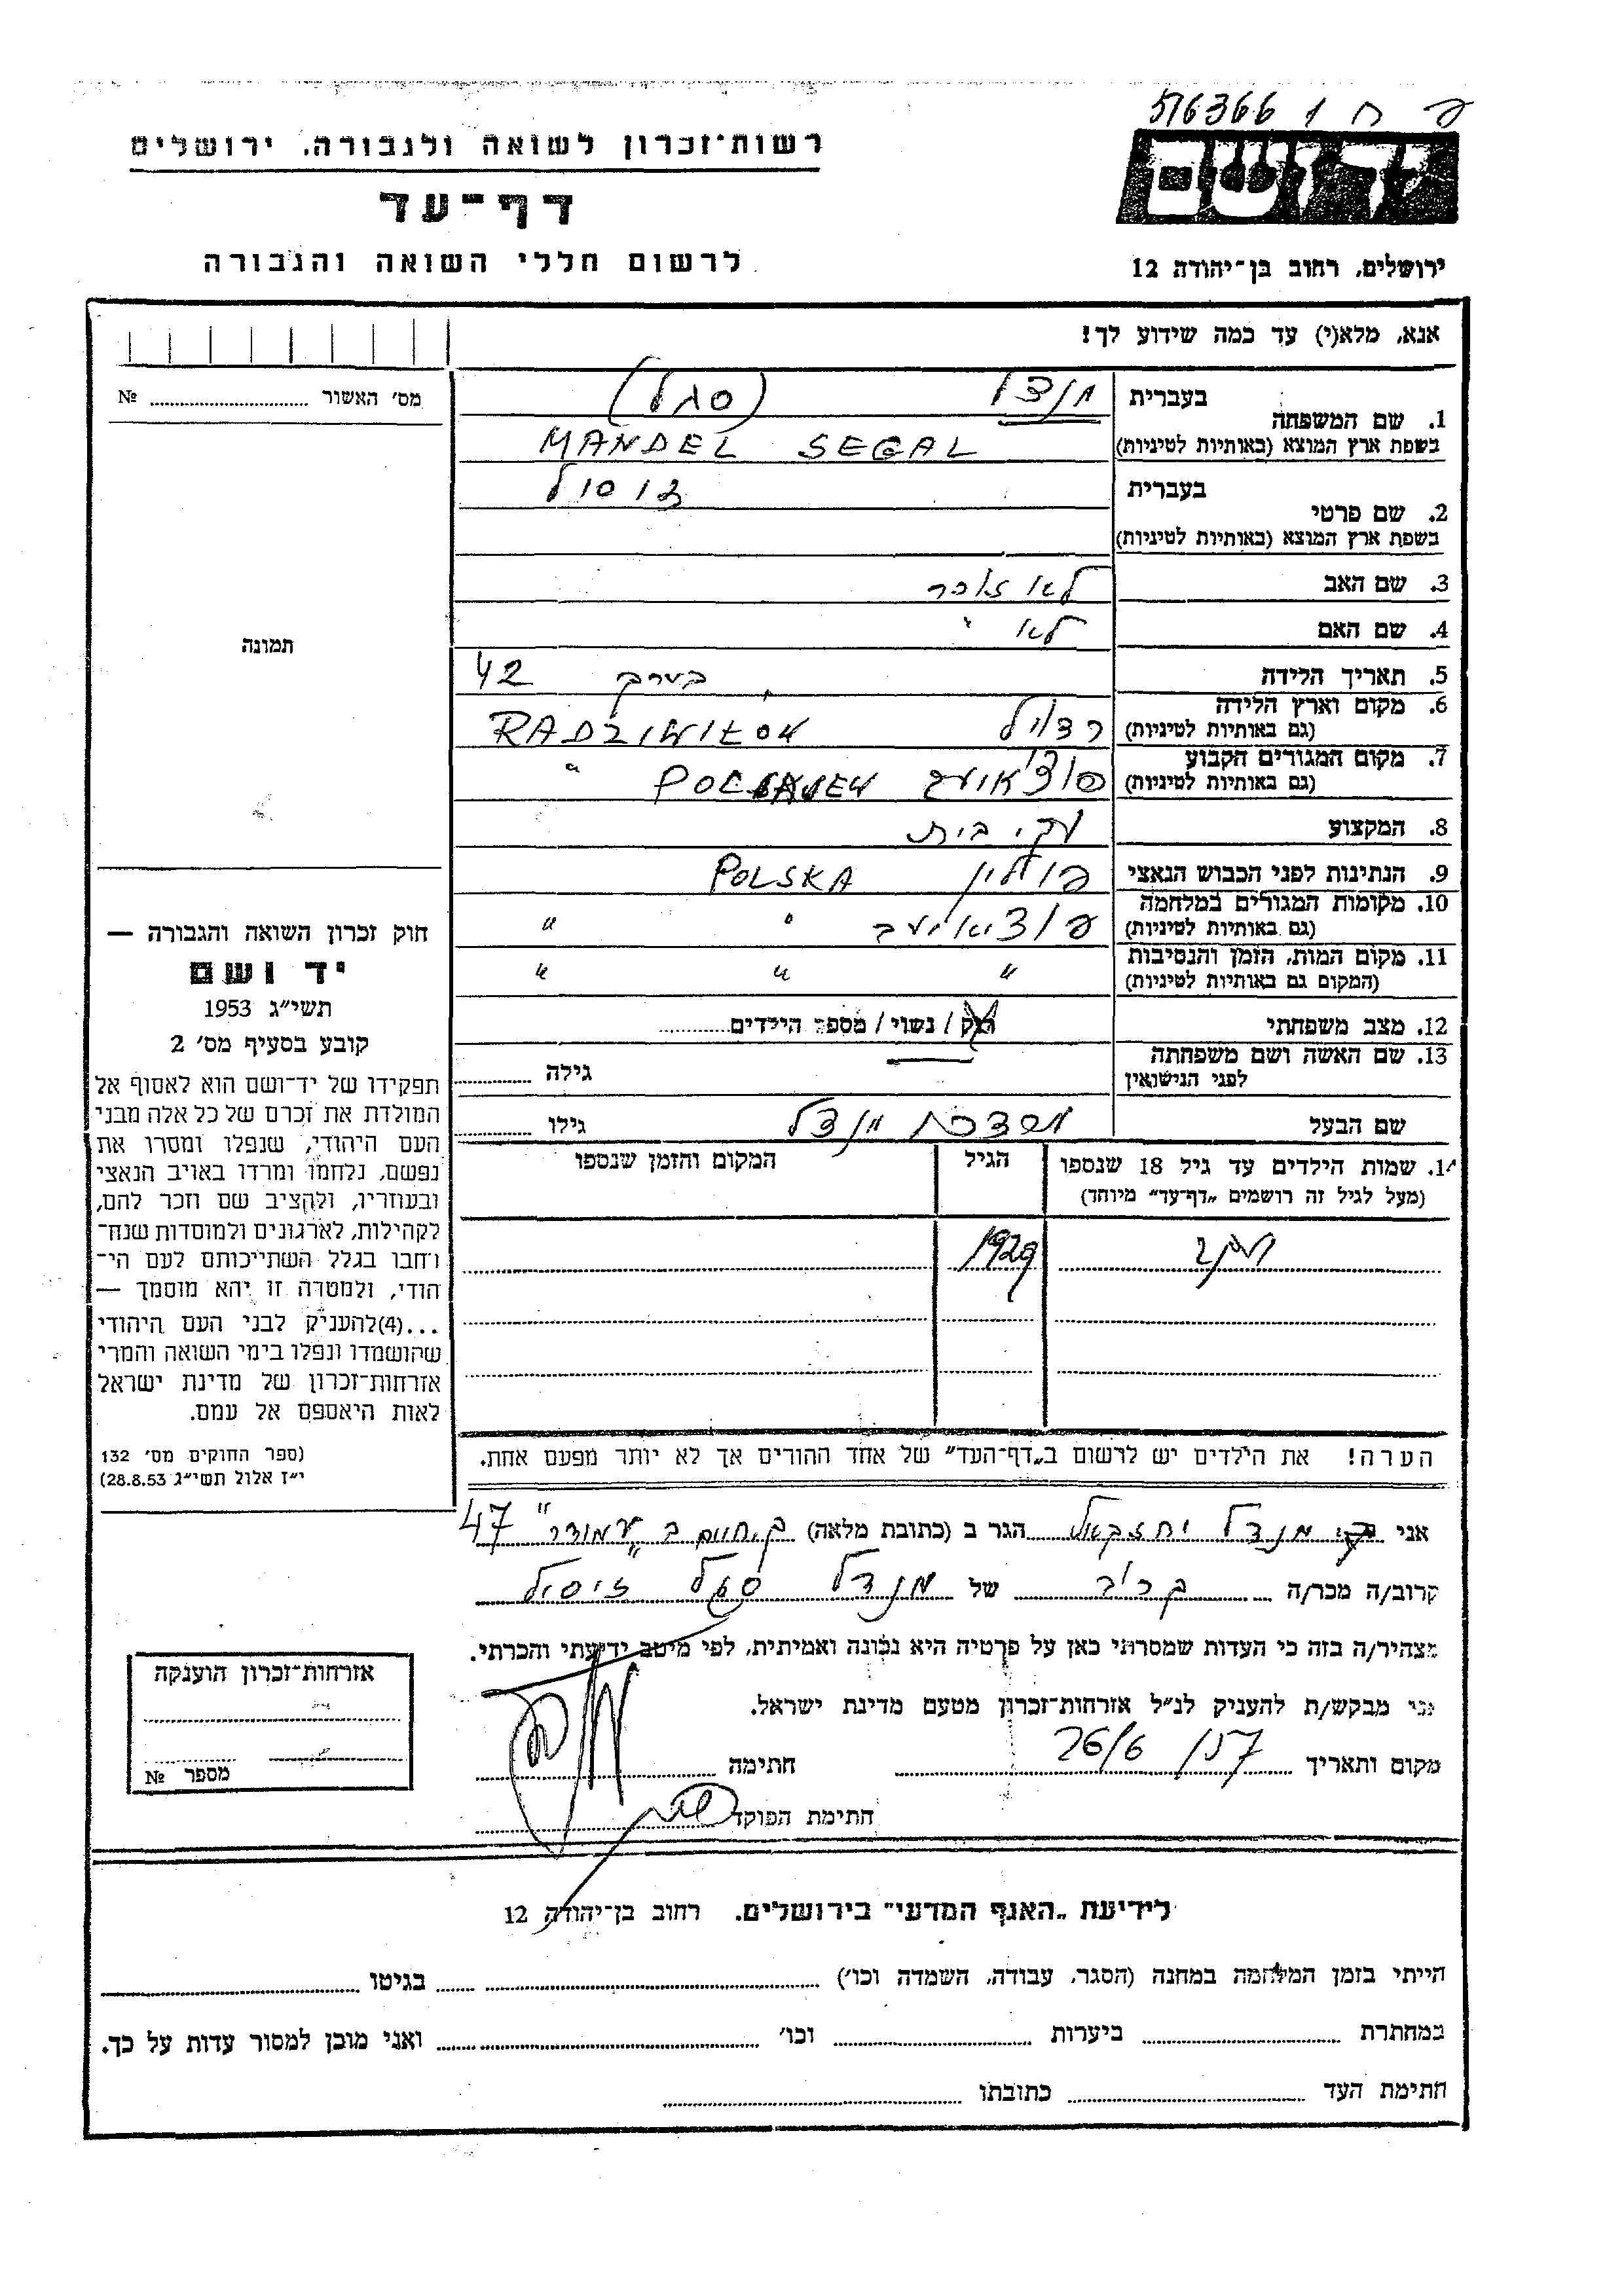 פ ח 1 516366
יד ושם
רשות־זכרון לשואה ולגבורה, ירושלים
דף־עד
לרשום חללי השואה והגבורה
ירושלים, רחוב בן־יהודה 12
אנא, מלא(י) עד כמה שידוע לך!
מס׳ האשור № 
1. שם המשפחה
בעברית מנדל (סגל)
בשפת ארץ המוצא (באותיות לטיניות) MANDEL SEGAL
2. שם פרטי
בעברית זיסל
בשפת ארץ המוצא (באותיות לטיניות)
3. שם האב לא זוכר
4. שם האם לא "
5. תאריך הלידה בערך 42
6. מקום וארץ הלידה
(גם באותיות לטיניות)
7. מקום המגורים הקבוע
(גם באותיות לטיניות)
8. המקצוע עק׳ בית
9. הנתינות לפני הכבוש הנאצי פולין POLSKA
10. מקומות המגורים במלחמה
(גם באותיות לטיניות) " "
11. מקום המות, הזמן והנסיבות
(המקום גם באותיות לטיניות) " " "
12. מצב משפחתי רוק / נשוי / מספר הילדים
13. שם האשה ושם משפחתה
לפני הנישואין
גילה
שם הבעל מרדכי מנדל
גילו
14. שמות הילדים עד גיל 18 שנספו
(מעל לגיל זה רושמים „דף־עד״ מיוחד)
הגיל
המקום והזמן שנספו
1929
הערה! את הילדים יש לרשום ב„דף־העד״ של אחד ההורים אך לא יותר מפעם אחת.
תמונה
חוק זכרון השואה והגבורה —
יד ושם
תשי״ג 1953
קובע בסעיף מס׳ 2
תפקידו של יד־ושם הוא לאסוף אל
המולדת את זכרם של כל אלה מבני
העם היהודי, שנפלו ומסרו את
נפשם, נלחמו ומרדו באויב הנאצי
ובעוזריו, ולהציב שם וזכר להם,
לקהילות, לארגונים ולמוסדות שנח־
רחבו בגלל השתייכותם לעם הי־
הודי, ולמטרה זו יהא מוסמך —
...(4)להעניק לבני העם היהודי
שהושמדו ונפלו בימי השואה והמרי
אזרחות־זכרון של מדינת ישראל
לאות היאספם אל עמם.
(ספר החוקים מס׳ 132
י״ז אלול תשי״ג 28.8.53)
אני מנדל יחזקאל הגר ב (כתובת מלאה) ק. חיים ב 47
קרוב/ה מכר/ה קרוב של מנדל סגל זיסל
מצהיר/ה בזה כי העדות שמסרתי כאן על פרטיה היא נכונה ואמיתית, לפי מיטב ידיעתי והכרתי.
הנני מבקש/ת להעניק לנ״ל אזרחות־זכרון מטעם מדינת ישראל.
מקום ותאריך 26/6/57 חתימה
חתימת הפוקד
אזרחות־זכרון הוענקה
מספר №
לידיעת „האגף המדעי״ בירושלים. רחוב בן־יהודה 12
הייתי בזמן המלחמה במחנה (הסגר, עבודה, השמדה וכו׳) בגיטו
במחתרת ביערות וכו׳ ואני מוכן למסור עדות על כך.
חתימת העד כתובתו